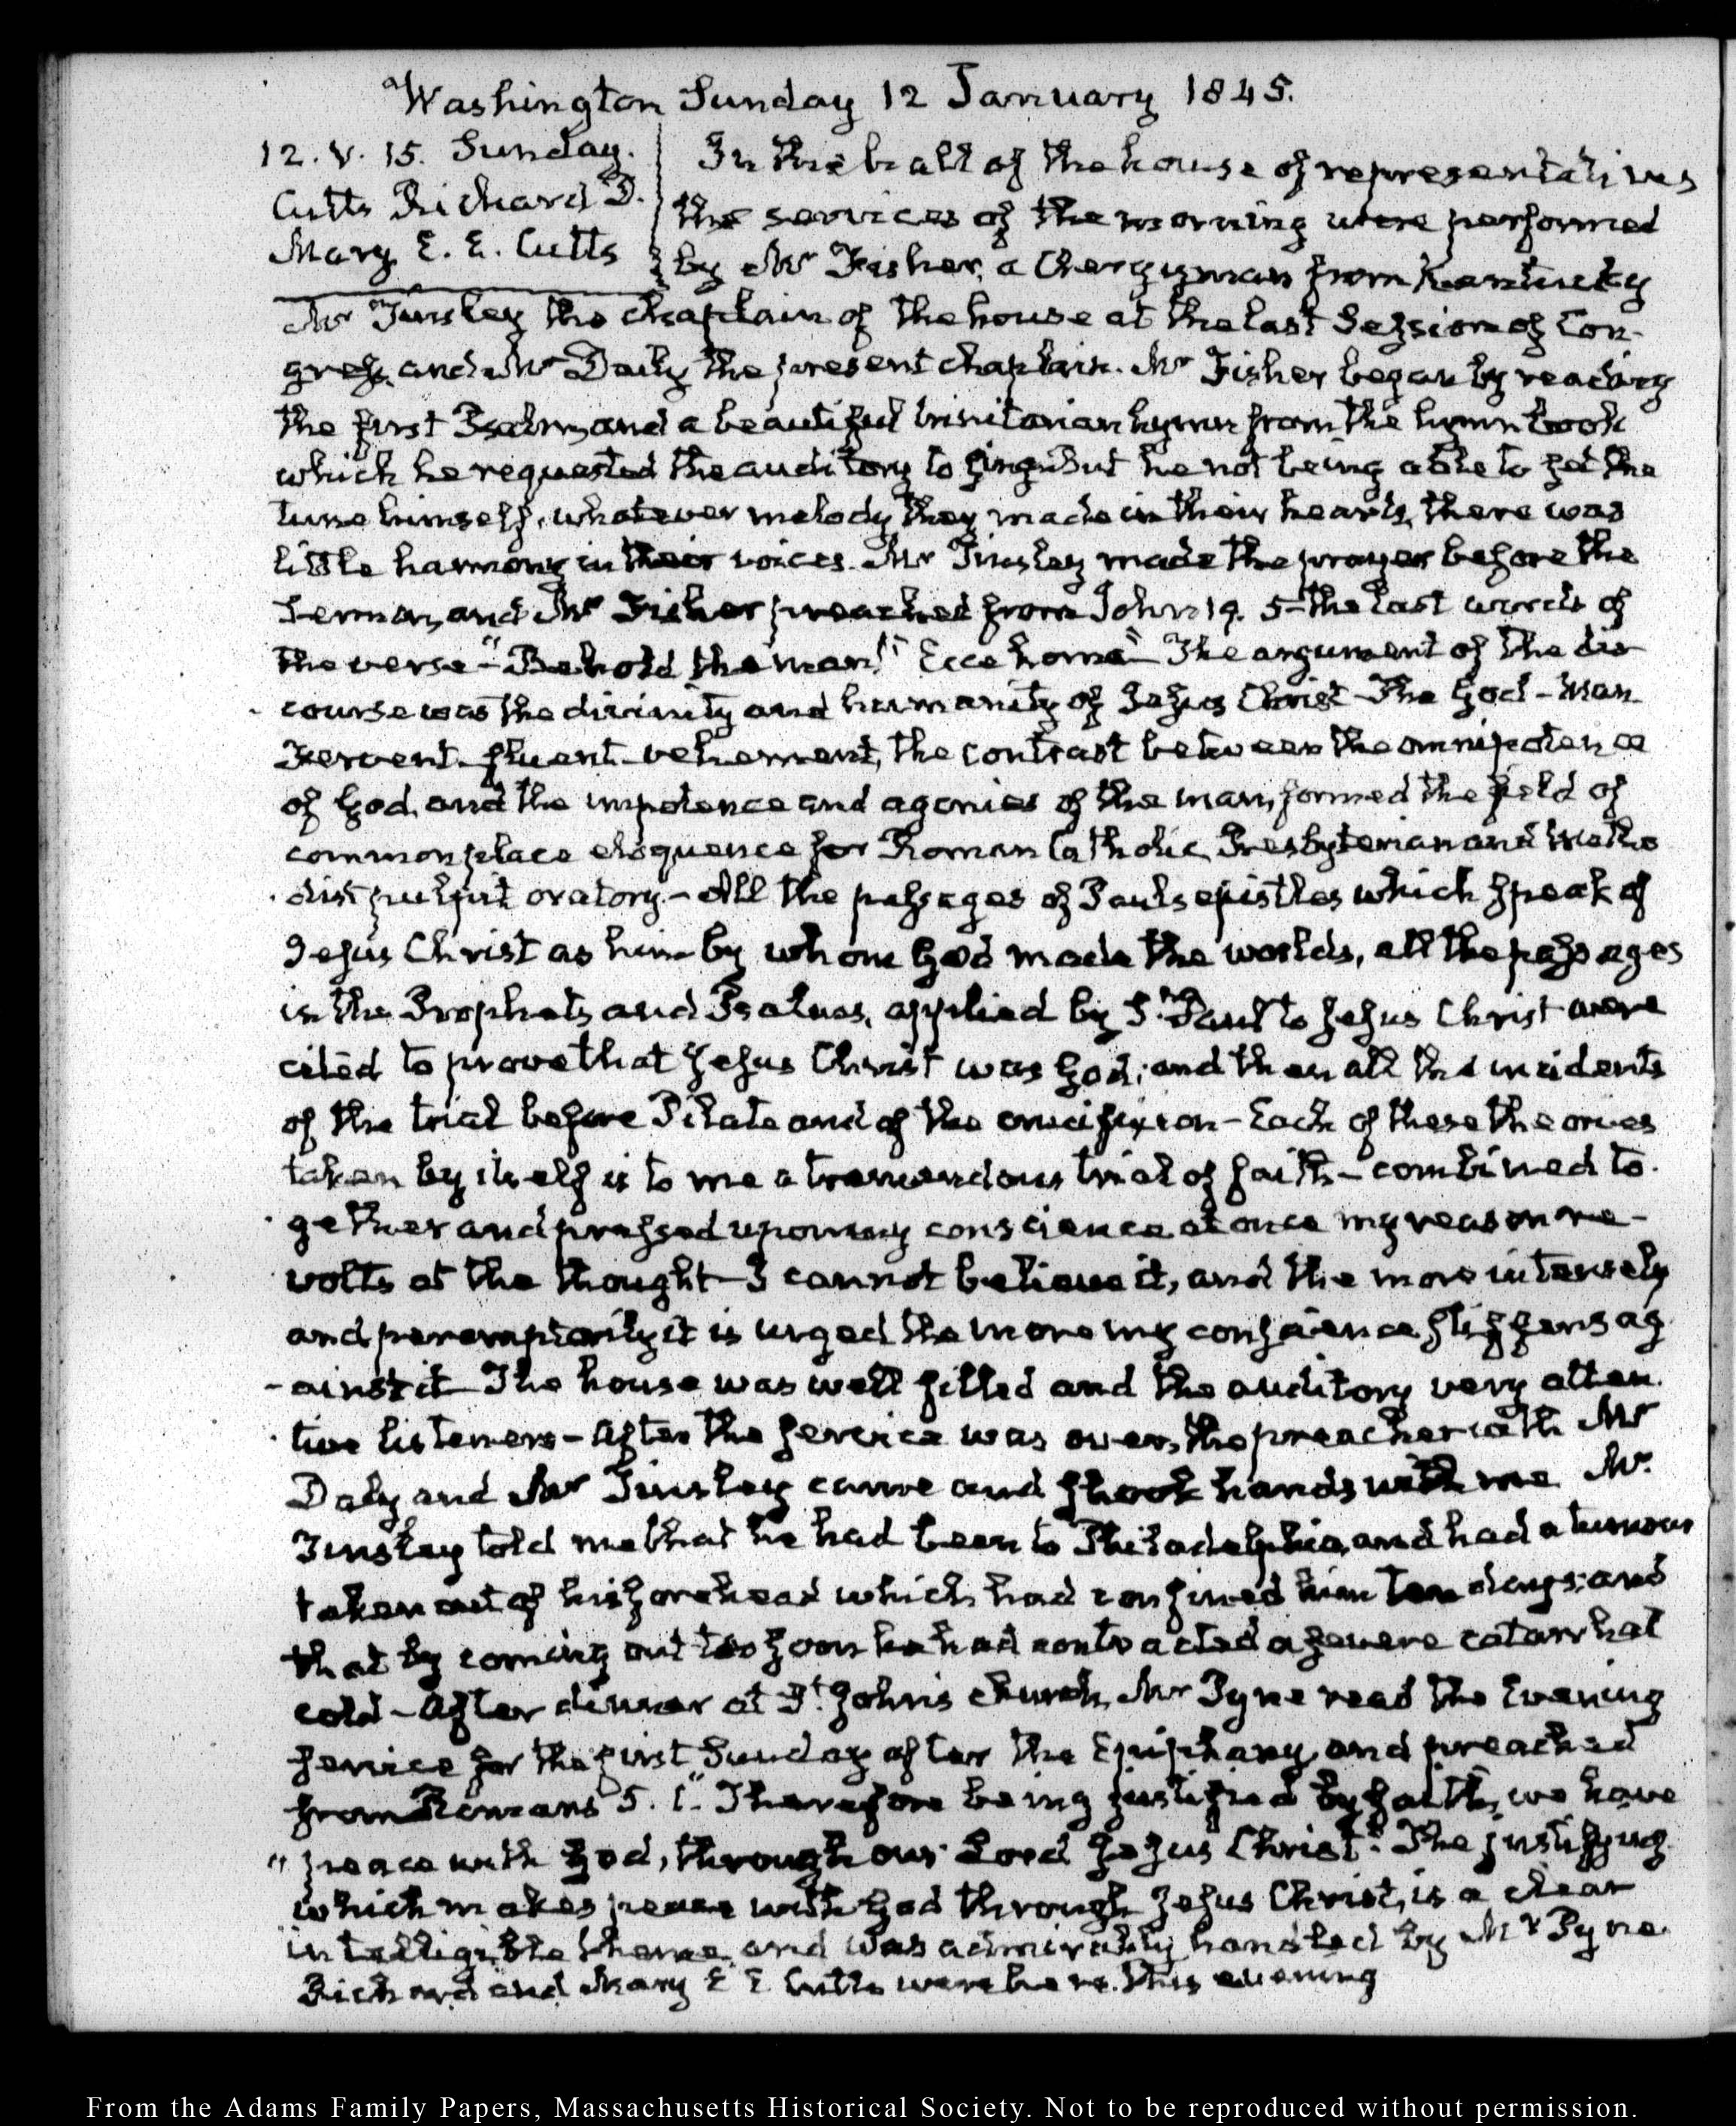 Washington Sunday 12 January 1845.
12. V. 15. Sunday.
Cutts Richard D.
Mary E. E. Cutts
In the hall of the house of representatives
the services of the morning were performed
by Mr Fisher, a Clergyman from Kentucky
Mr Tinsley the chaplain of the house at the last Session of Con-
gress, and Mr Daily the present chaplain. Mr Fisher began by reading
the first Psalm, and a beautiful trinitarian hymn from the hymn book
which he requested the auditory to sing. But he not being able to set the
tune himself, whatever melody they made in their hearts, there was
little harmony in their voices. Mr Tinsley made the prayer before the
Sermon, and Mr Fisher preached from John 19. 5 - the last words of
the verse - "Behold the man!" "Ecce homo" - The argument of the dis
course was the divinity and humanity of Jesus Christ - The God-Man
Fervent, fluent vehement, the contrast between the omnipotence
of God, and the impotence and agonies of the man, formed the field of
commonplace eloquence for Roman Catholic, Presbyterian and Metho
dist pulpit oratory. - All the passages of Pauls epistles which speak of
Jesus Christ as him by whom God made the worlds, all the passages
in the Prophets and Psalms, applied by St. Paul to Jesus Christ were
cited to prove that Jesus Christ was God; and then all the incidents
of the trial before Pilate and of the crucifixion - Each of these theories
taken by itself is to me a tremendous trial of faith - combined to
gether and pressed upon my conscience at once my reason re-
volts at the thought - I cannot believe it, and the more intensely
and peremptorily it is urged the more my conscience stiffens ag
-ainst it - The house was well filled and the auditory very atten
tive listeners - After the service was over, the preacher with Mr
Daly and Mr Tinsley came and shook hands with me Mr.
Tinsley told me that he had been to Philadelphia, and had a tumour
taken out of his forehead which had confined him ten days; and
that by coming out too soon he had contracted a severe catarrhal
cold - After dinner at St. John's church, Mr Pyne read the Evening
service for the first Sunday after the Epiphany, and preached
from Romans 5. 1. "Therefore being justified by faith, we have
"peace with God, through our Lord Jesus Christ". The justifying
which makes peace with God through Jesus Christ, is a clear
intelligible theme, and was admirably handled by Mr Pyne.
Richard and Mary E E Cutts were here this evening
From the Adams Family Papers, Massachusetts Historical Society. Not to be reproduced without permission.